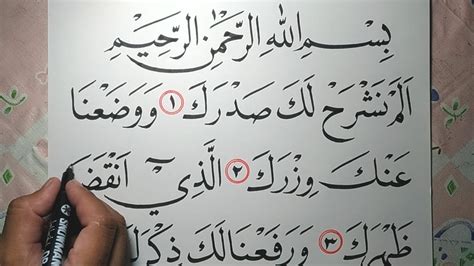 بِسْمِ اللهِ الرَّحْمٰنِ الرَّحِيْمِ
اَلَمْ نَشْرَحْ لَكَ صَدْرَكَ ١ وَوَضَعْنَا
عَنْكَ وِزْرَكَ ٢ الَّذِيْٓ اَنْقَضَ
ظَهْرَكَ ٣ وَرَفَعْنَا لَكَ ذِكْرَكَ
SNOWMAN